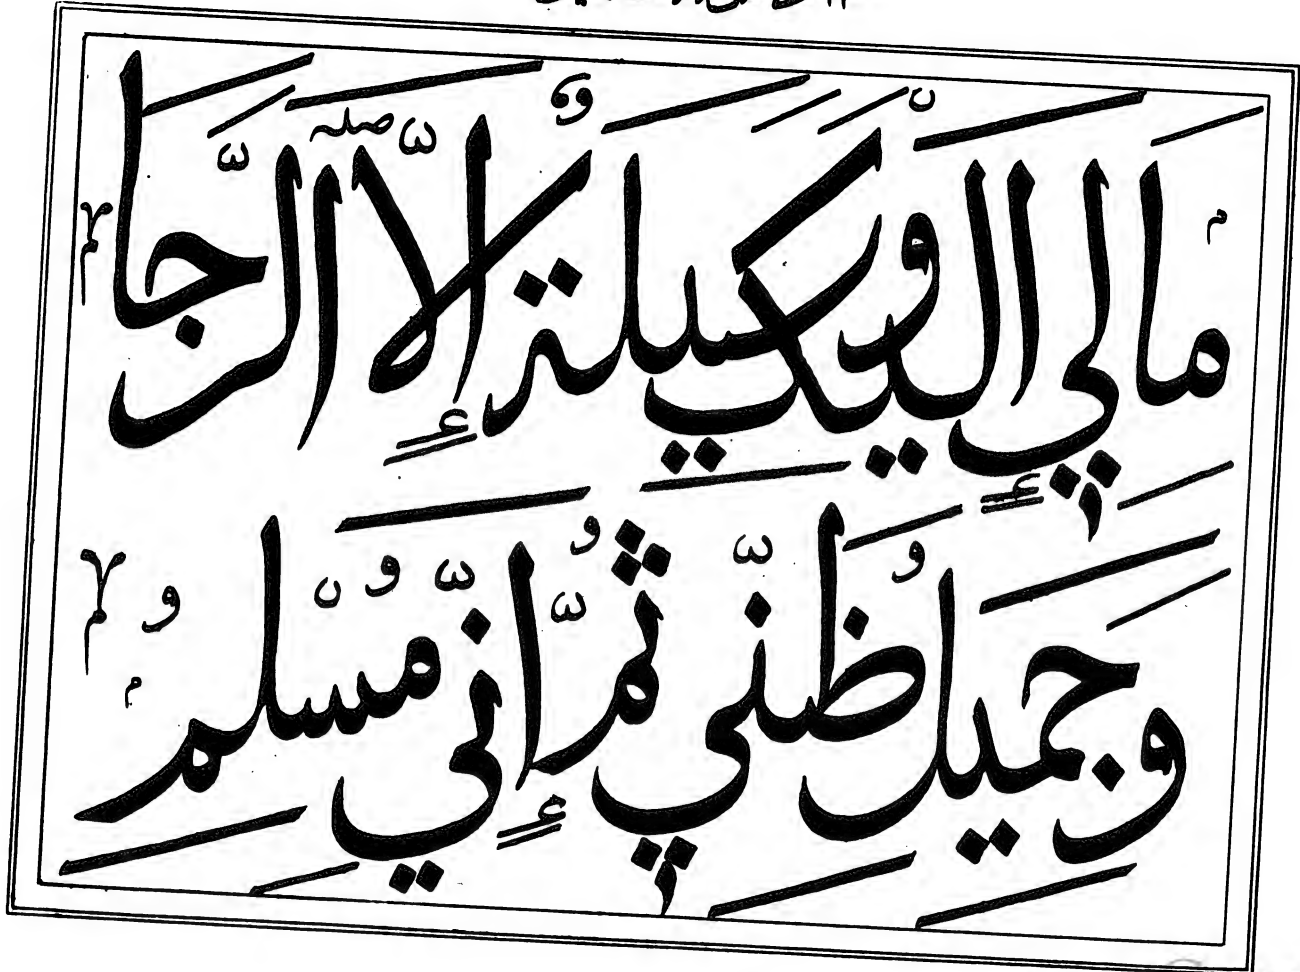 مَالِي إِلَيْكَ وَسِيلَةٌ إِلَّا الرَّجَا
وَجَمِيلُ ظَنِّي ثُمَّ إِنِّي مُسْلِمُ